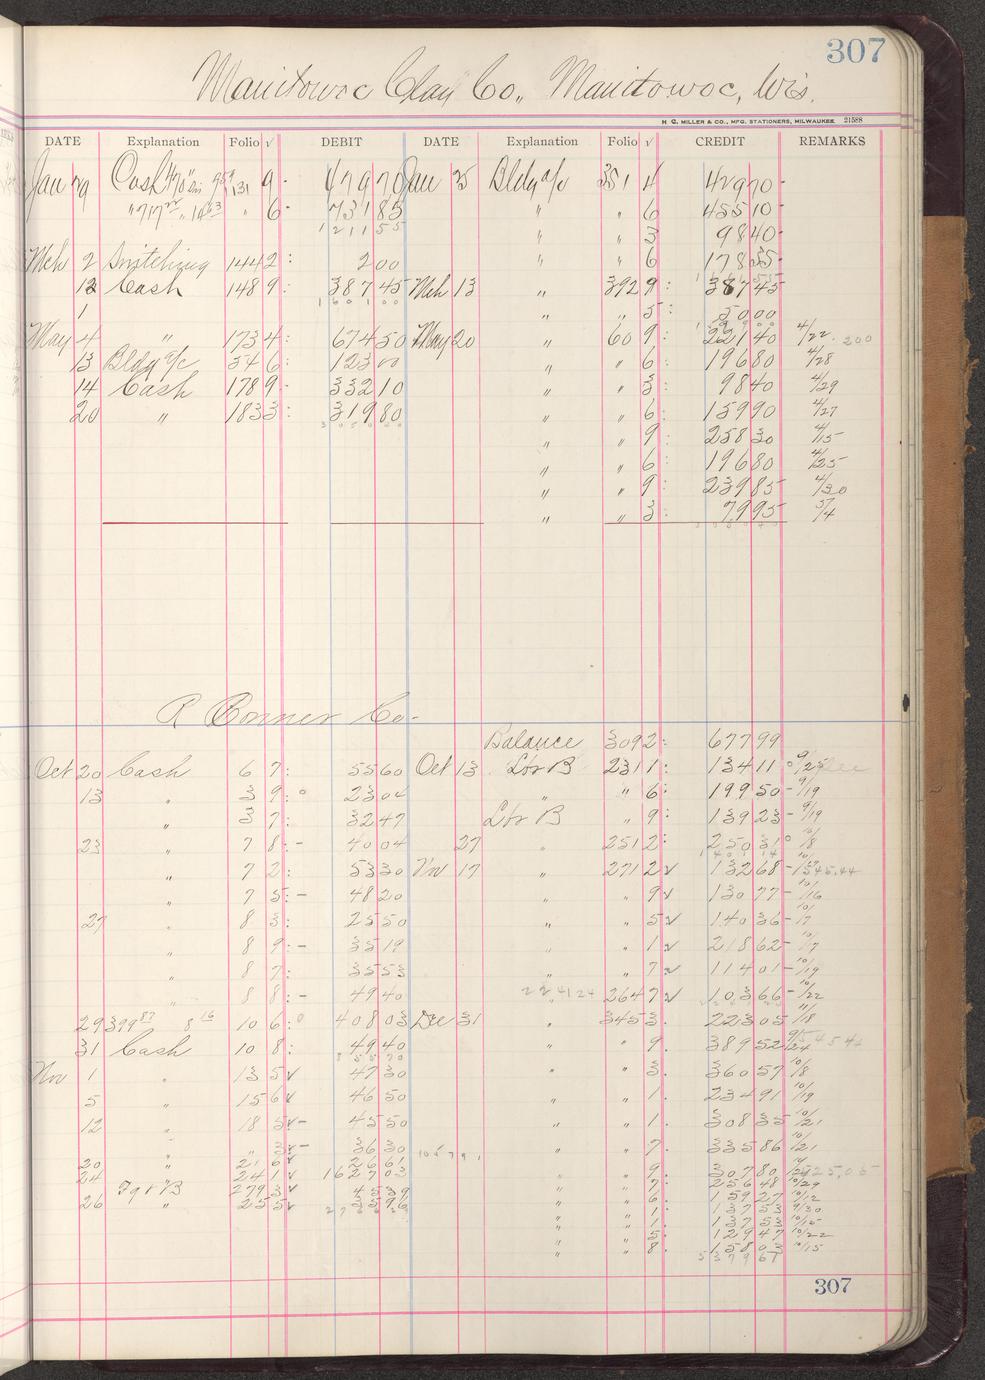 307
Manitowoc Clay Co., Manitowoc, Wis.
H. C. MILLER & CO., MFG. STATIONERS, MILWAUKEE 21588
DATE Explanation Folio √ DEBIT DATE Explanation Folio √ CREDIT REMARKS
Jan 29 Cash 131 9 - 479 70 Jan 25 Bldg a/c 351 4 429 70 -
" " 6 - 731 85 " " 6 455 10 -
1211 55 " " 3 98 40 -
Mch 2 Switching 144 2 : 2 00 " " 6 178 35 -
12 Cash 148 9 : 387 45 Mch 13 " 392 9 : 387 45
1 1601 00 " " 5 : 50 00
May 4 " 173 4 : 674 50 May 20 " 60 9 : 221 40 4/22 . 200
13 Bldg a/c 54 6 : 123 00 " " 6 : 196 80 4/28
14 Cash 178 9 - 332 10 " " 3 : 98 40 4/29
20 " 183 3 : 319 80 " " 6 : 159 90 4/27
" " 9 : 258 30 4/15
" " 6 : 196 80 4/25
" " 9 : 239 85 4/30
" " 3 : 79 95 5/4
R Conner Co.
Balance 309 2 : 677 99
Oct 20 Cash 6 7 : 55 60 Oct 13 Lbr B 231 1 : 134 11
13 " 3 9 : 23 04 " " 6 : 199 50 - 9/19
" 3 7 : 32 47 Lbr B " 9 : 139 23 - 9/19
23 " 7 8 : - 40 04 27 " 251 2 : 250 31 10/8
" 7 2 : 53 30 Nov 17 " 271 2 √ 132 68 - 1545.44
" 7 5 : - 48 20 " " 9 √ 130 77 - 10/16
27 " 8 3 : 25 50 " " 5 √ 140 36 - 10/17
" 8 9 : - 35 19 " " 1 √ 218 62 - 10/7
" 8 7 : 35 53 " " 7 √ 114 01 - 10/19
" 8 8 : - 49 40 264 7 √ 103 66 - 10/22
29 399 87 8 16 10 6 : 408 03 Dec 31 " 345 3 . 223 05 11/18
31 Cash 10 8 : 49 40 " " 9 . 389 52
Nov 1 " 13 5 √ 47 30 " " 3 . 360 57 10/8
5 " 15 6 √ 46 50 " " 1 . 234 91 10/19
12 " 18 5 √ - 45 50 " " 1 . 308 35 10/21
" " 3 √ - 36 30 " 7 . 335 86 10/21
20 " 21 6 √ 26 61 " " 9 . 307 80
24 " 24 1 √ 1627 03 " " 7 . 256 48 10/29
279 3 √ 45 39 " " 6 . 159 27 10/12
26 " 25 5 √ 35 96 " " 1 . 137 53 9/30
" " 1 . 137 53 10/15
" " 5 . 129 47 10/22
" " 8 . 158 03 10/15
5379 61
307